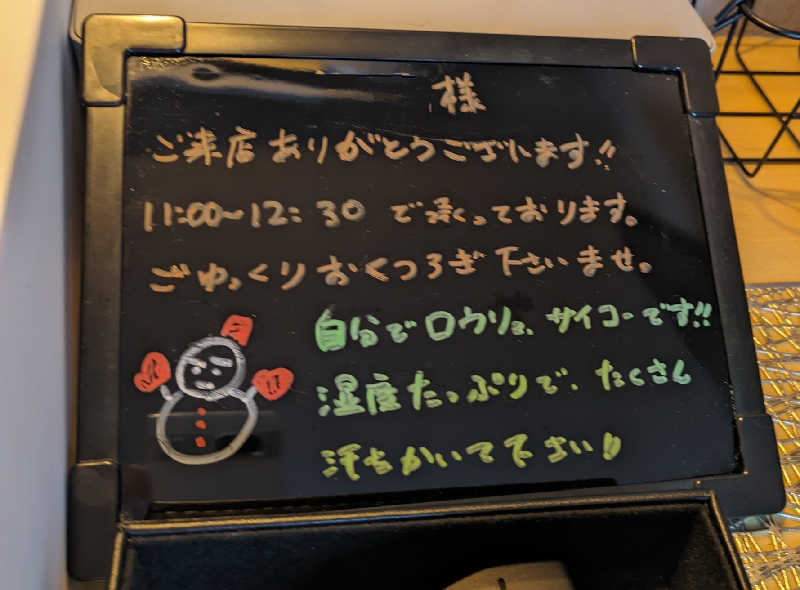 様
ご来店ありがとうございます!!
11:00~12:30 で承っております。
ごゆっくりおくつろぎ下さいませ。
自分でロウリュ、サイコーです!!
湿度たっぷりで、たくさん
汗をかいて下さい!!